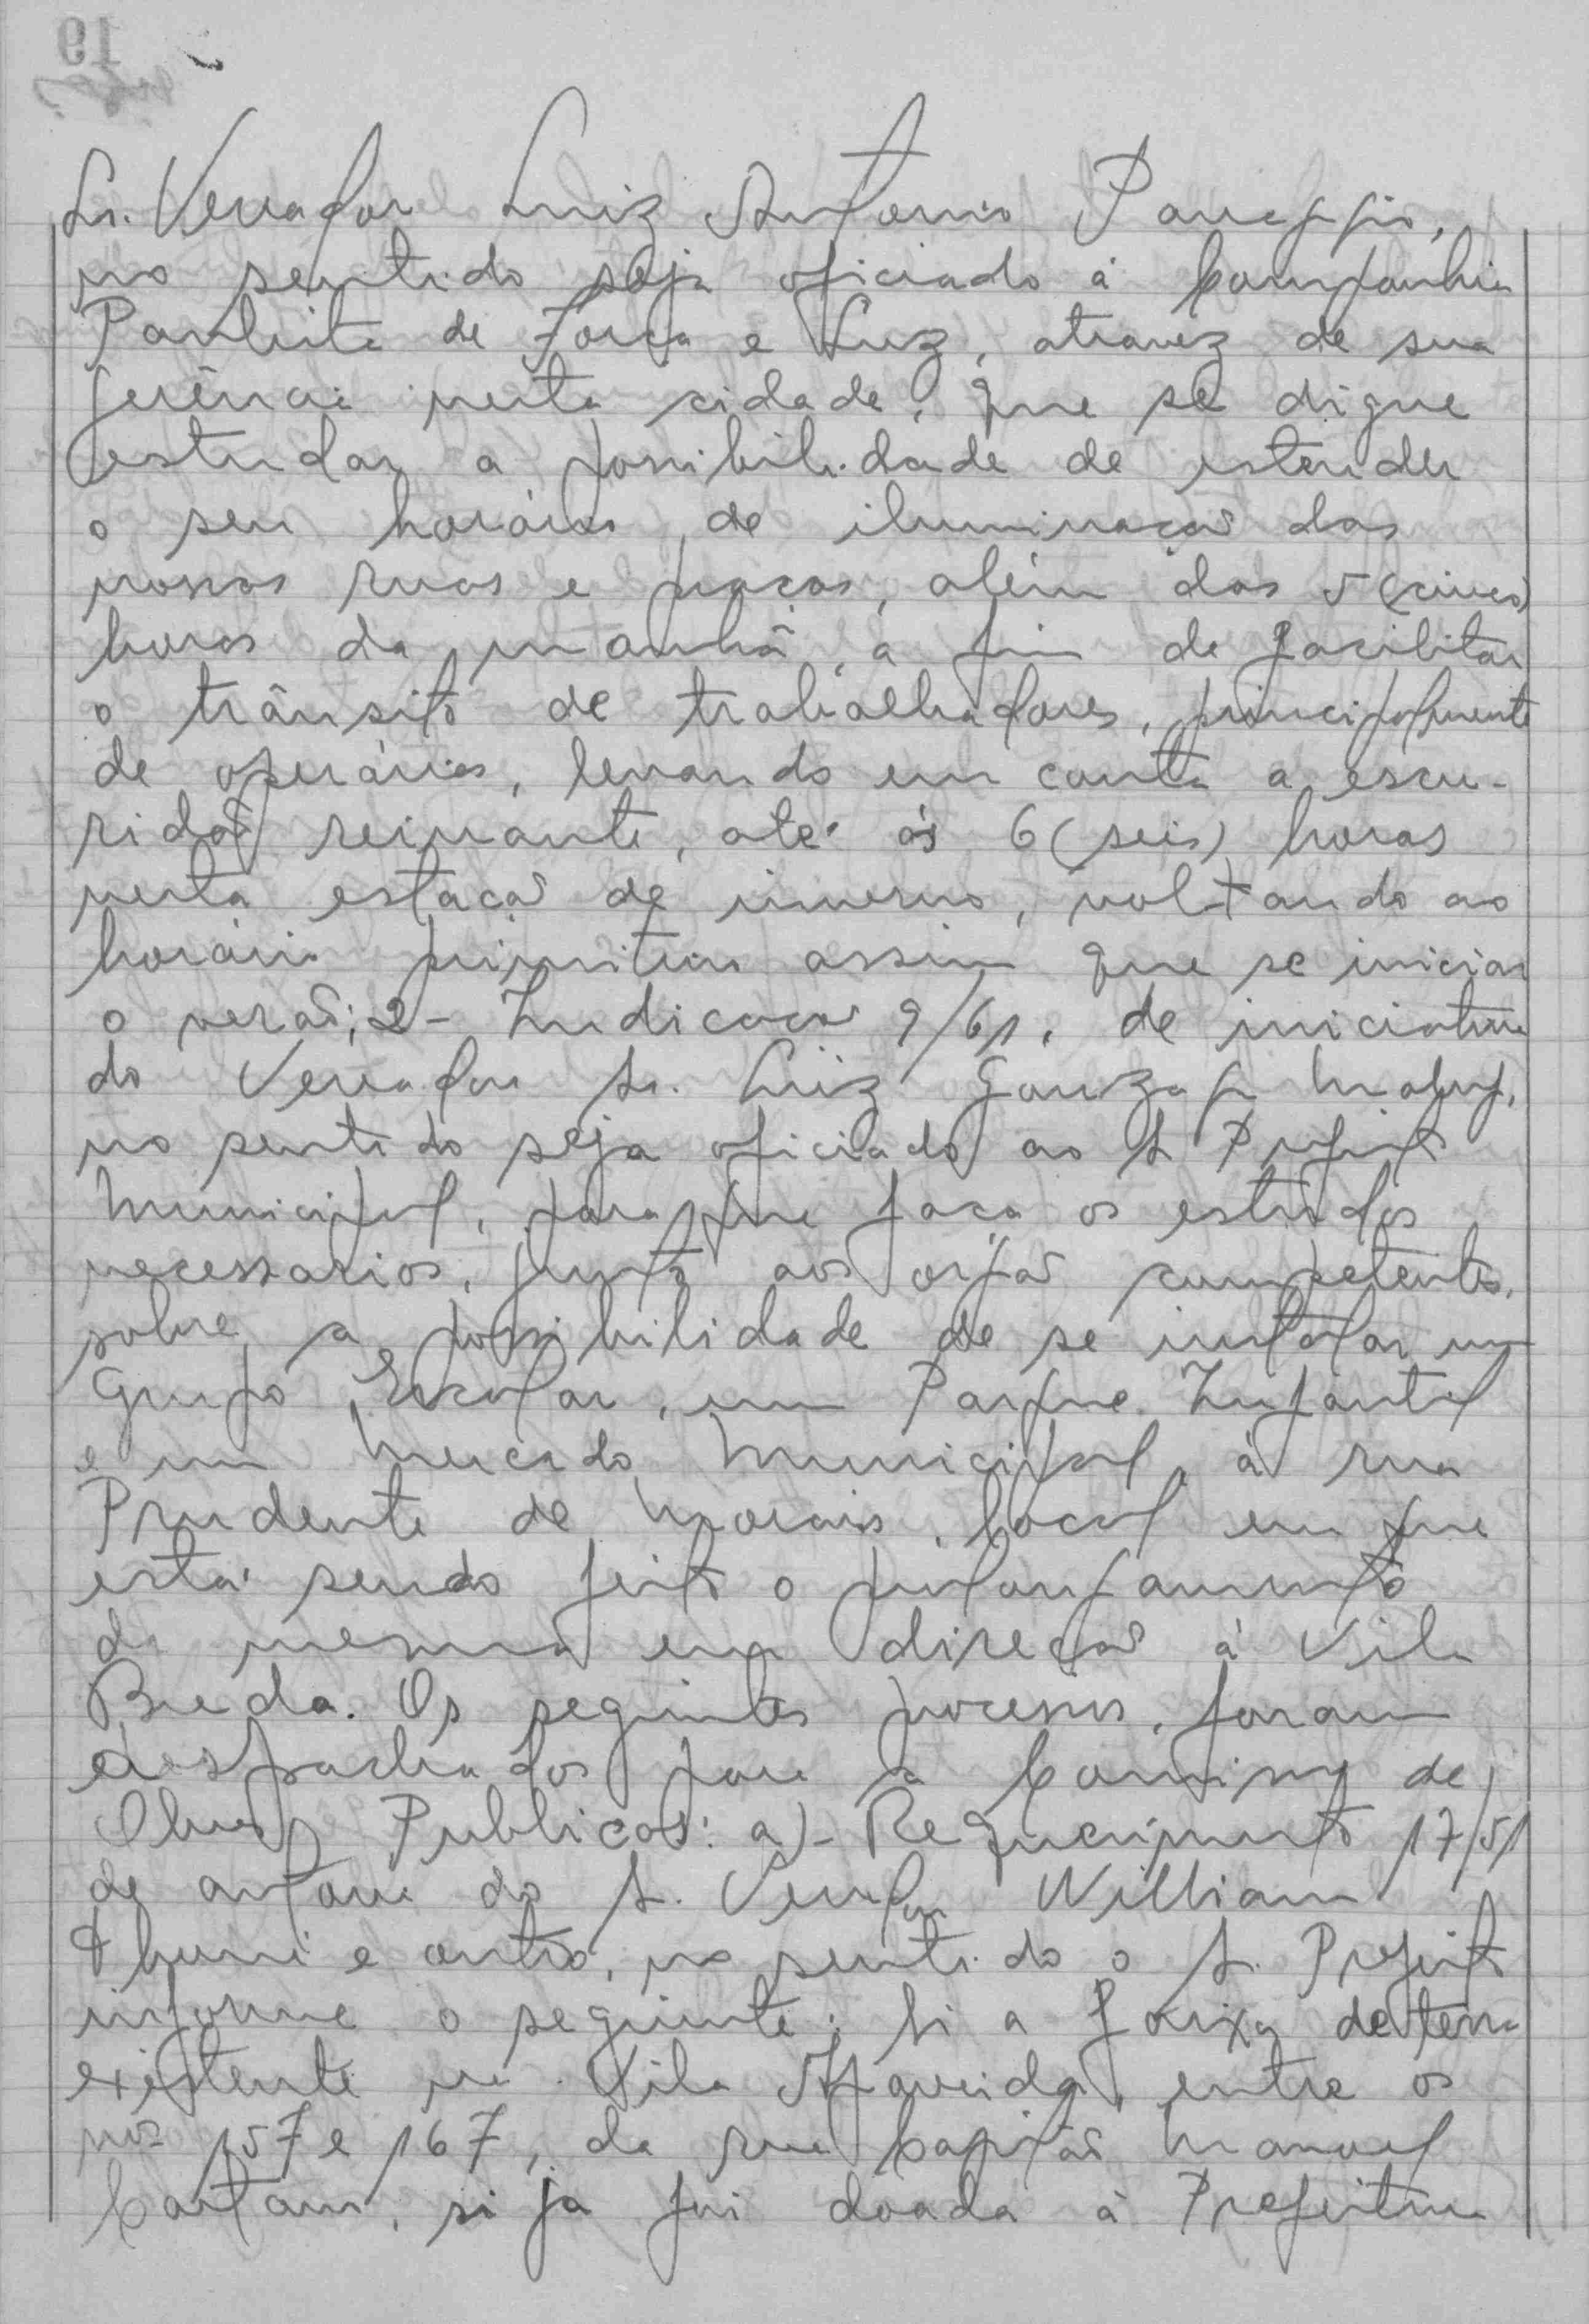 Sr. Vereador Luiz Antonio Panuggio,
no sentido seja oficiado á Companhia
Paulista de Força e Luz, atravez de sua
gerência nesta cidade, que se digne
estudar a possibilidade de estender
o seu horário de iluminação das
nossas ruas e praças, além das 5 (cinco)
horas da manhã, a fim de facilitar
o trânsito de trabalhadores, principalmente
de operários, levando em conta a escu-
ridão reinante, até ás 6 (seis) horas
nesta estação de inverno, voltando ao
horário primitivo assim que se iniciar
o verão; 2- Indicação 9/61, de iniciativa
do Vereador Sr. Luiz Gonzaga Maluf,
no sentido seja oficiado ao Sr Prefeito
Municipal, para que faça os estudos
necessarios, junto aos orgão competentes,
sobre a possibilidade de se instalar um
Grupo Escolar, um Parque Infantil
e um Mercado Municipal, à rua
Prudente de Morais, local em que
está sendo feito o prolongamento
da mesma em direção à Vila
Breda. Os seguintes processos, foram
despachados para a Comissão de
Obras Publicas: a)- Requerimento 17/51
de autoria do Sr. Vereador William
e outro, no sentido o Sr. Prefeito
informe o seguinte: Si a faixa de terra
existente na Vila Aparecida, entre os
nos 157 e 167, da rua Capitão Manoel
Caetano, si ja foi doada à Prefeitura